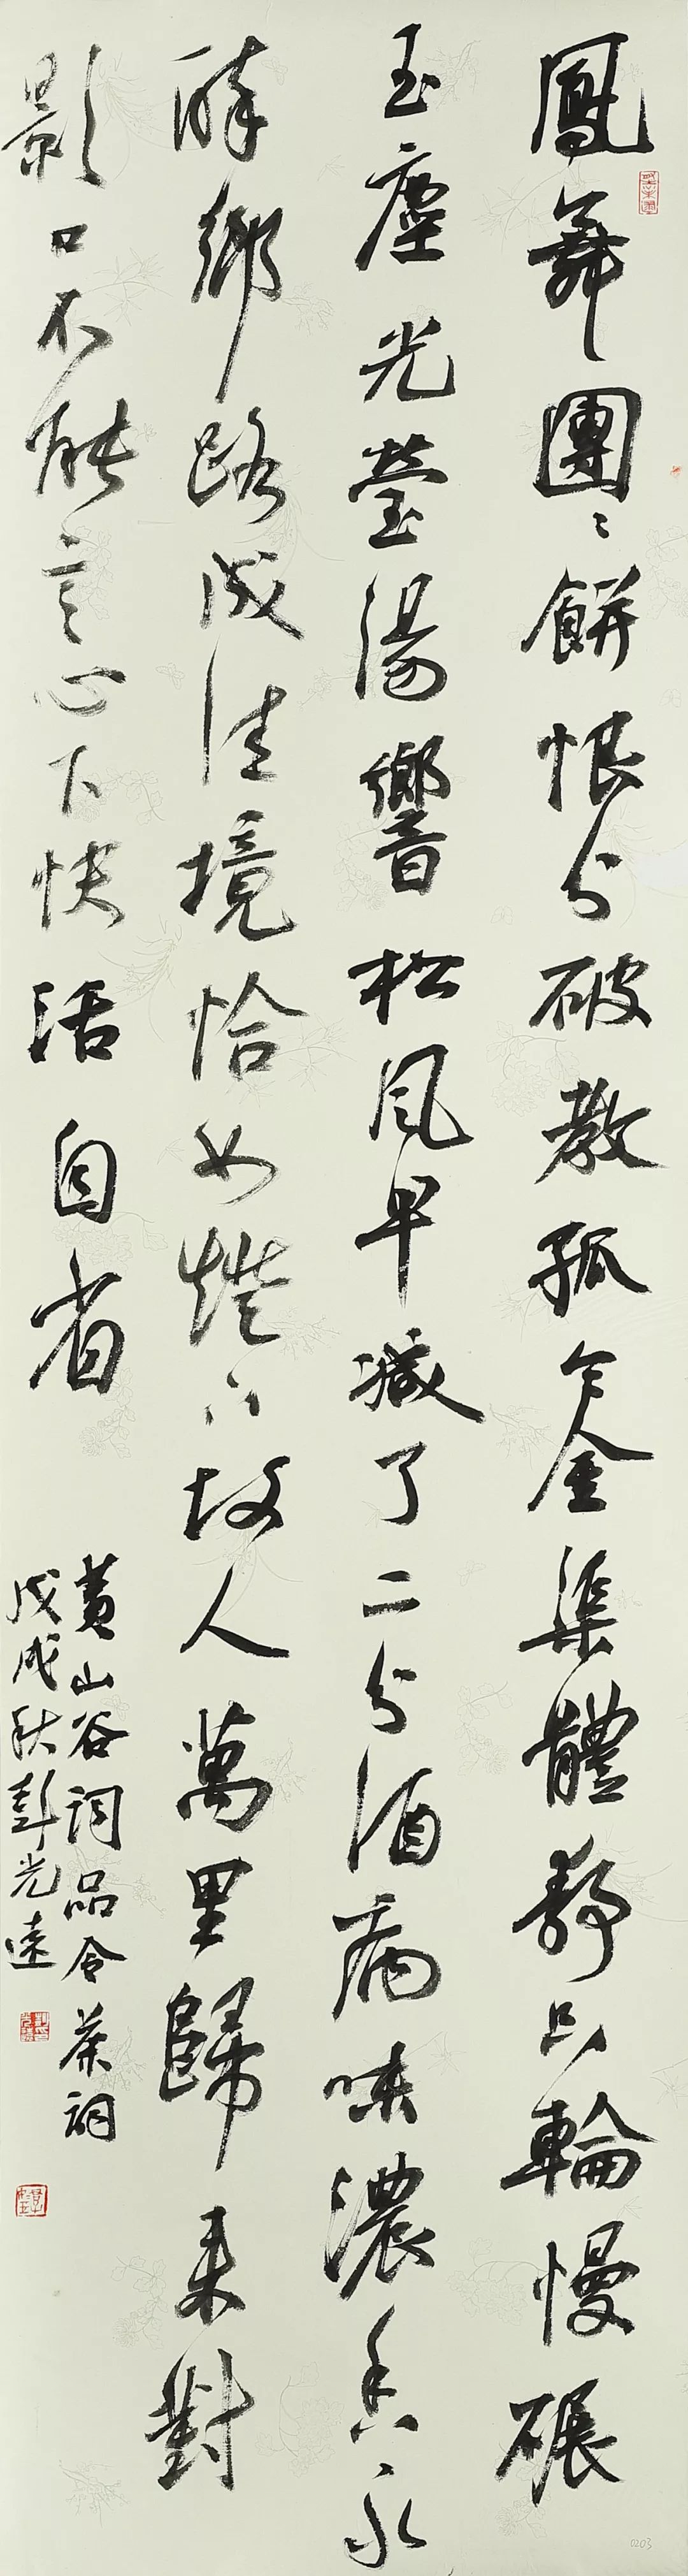 鳳舞團〻餅恨分破教孤令金渠體静只輪慢碾
玉塵光瑩湯響松風早減了二分酒病味濃香永
醉鄉路成佳境恰如燈下故人萬里歸来對
影口不能言心下快活自省
黄山谷詞品令茶詞
戊戌秋彭光遠
0203